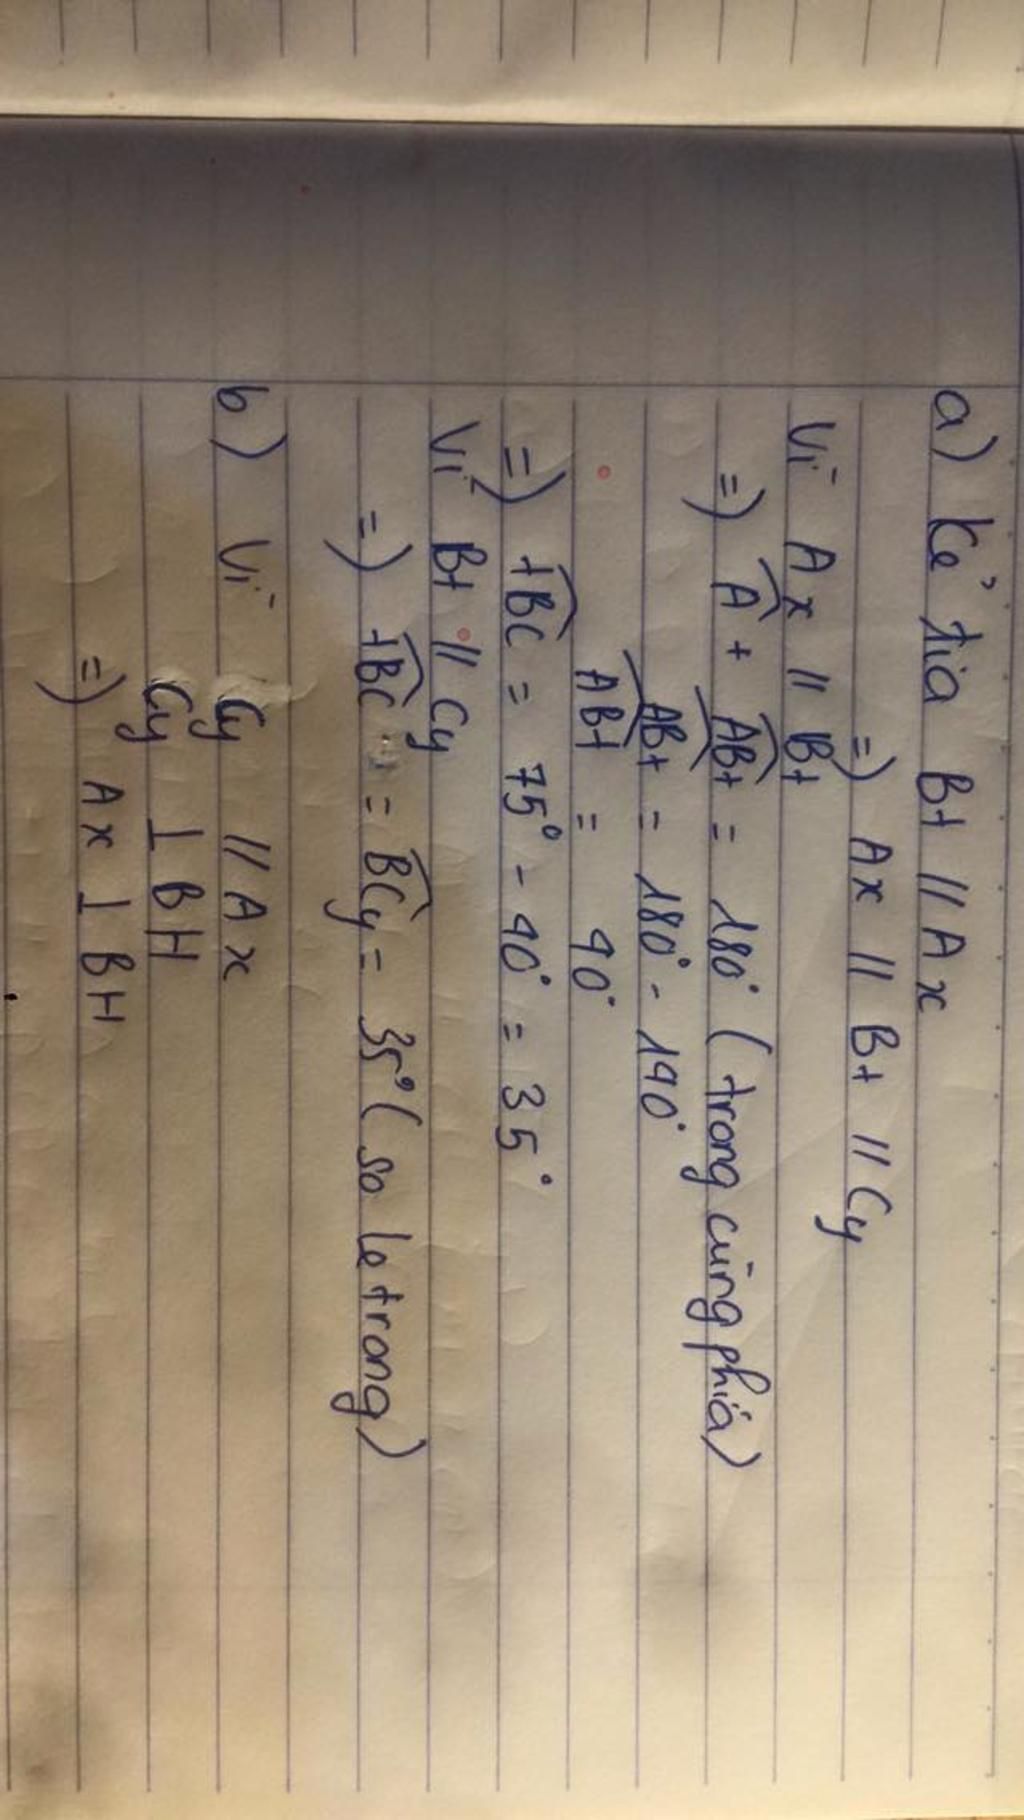 a) Kẻ tia Bt // Ax
=) Ax // Bt // Cy
Vì Ax // Bt
=) Â + ABt = 180° (trong cùng phiá)
ABt = 180° - 140°
ABt = 40°
=) tBC = 75° - 40° = 35°
Vì Bt // Cy
=) tBC = BCy = 35° (so le trong)
b) Vì Cy // Ax
Cy ⊥ BH
=) Ax ⊥ BH